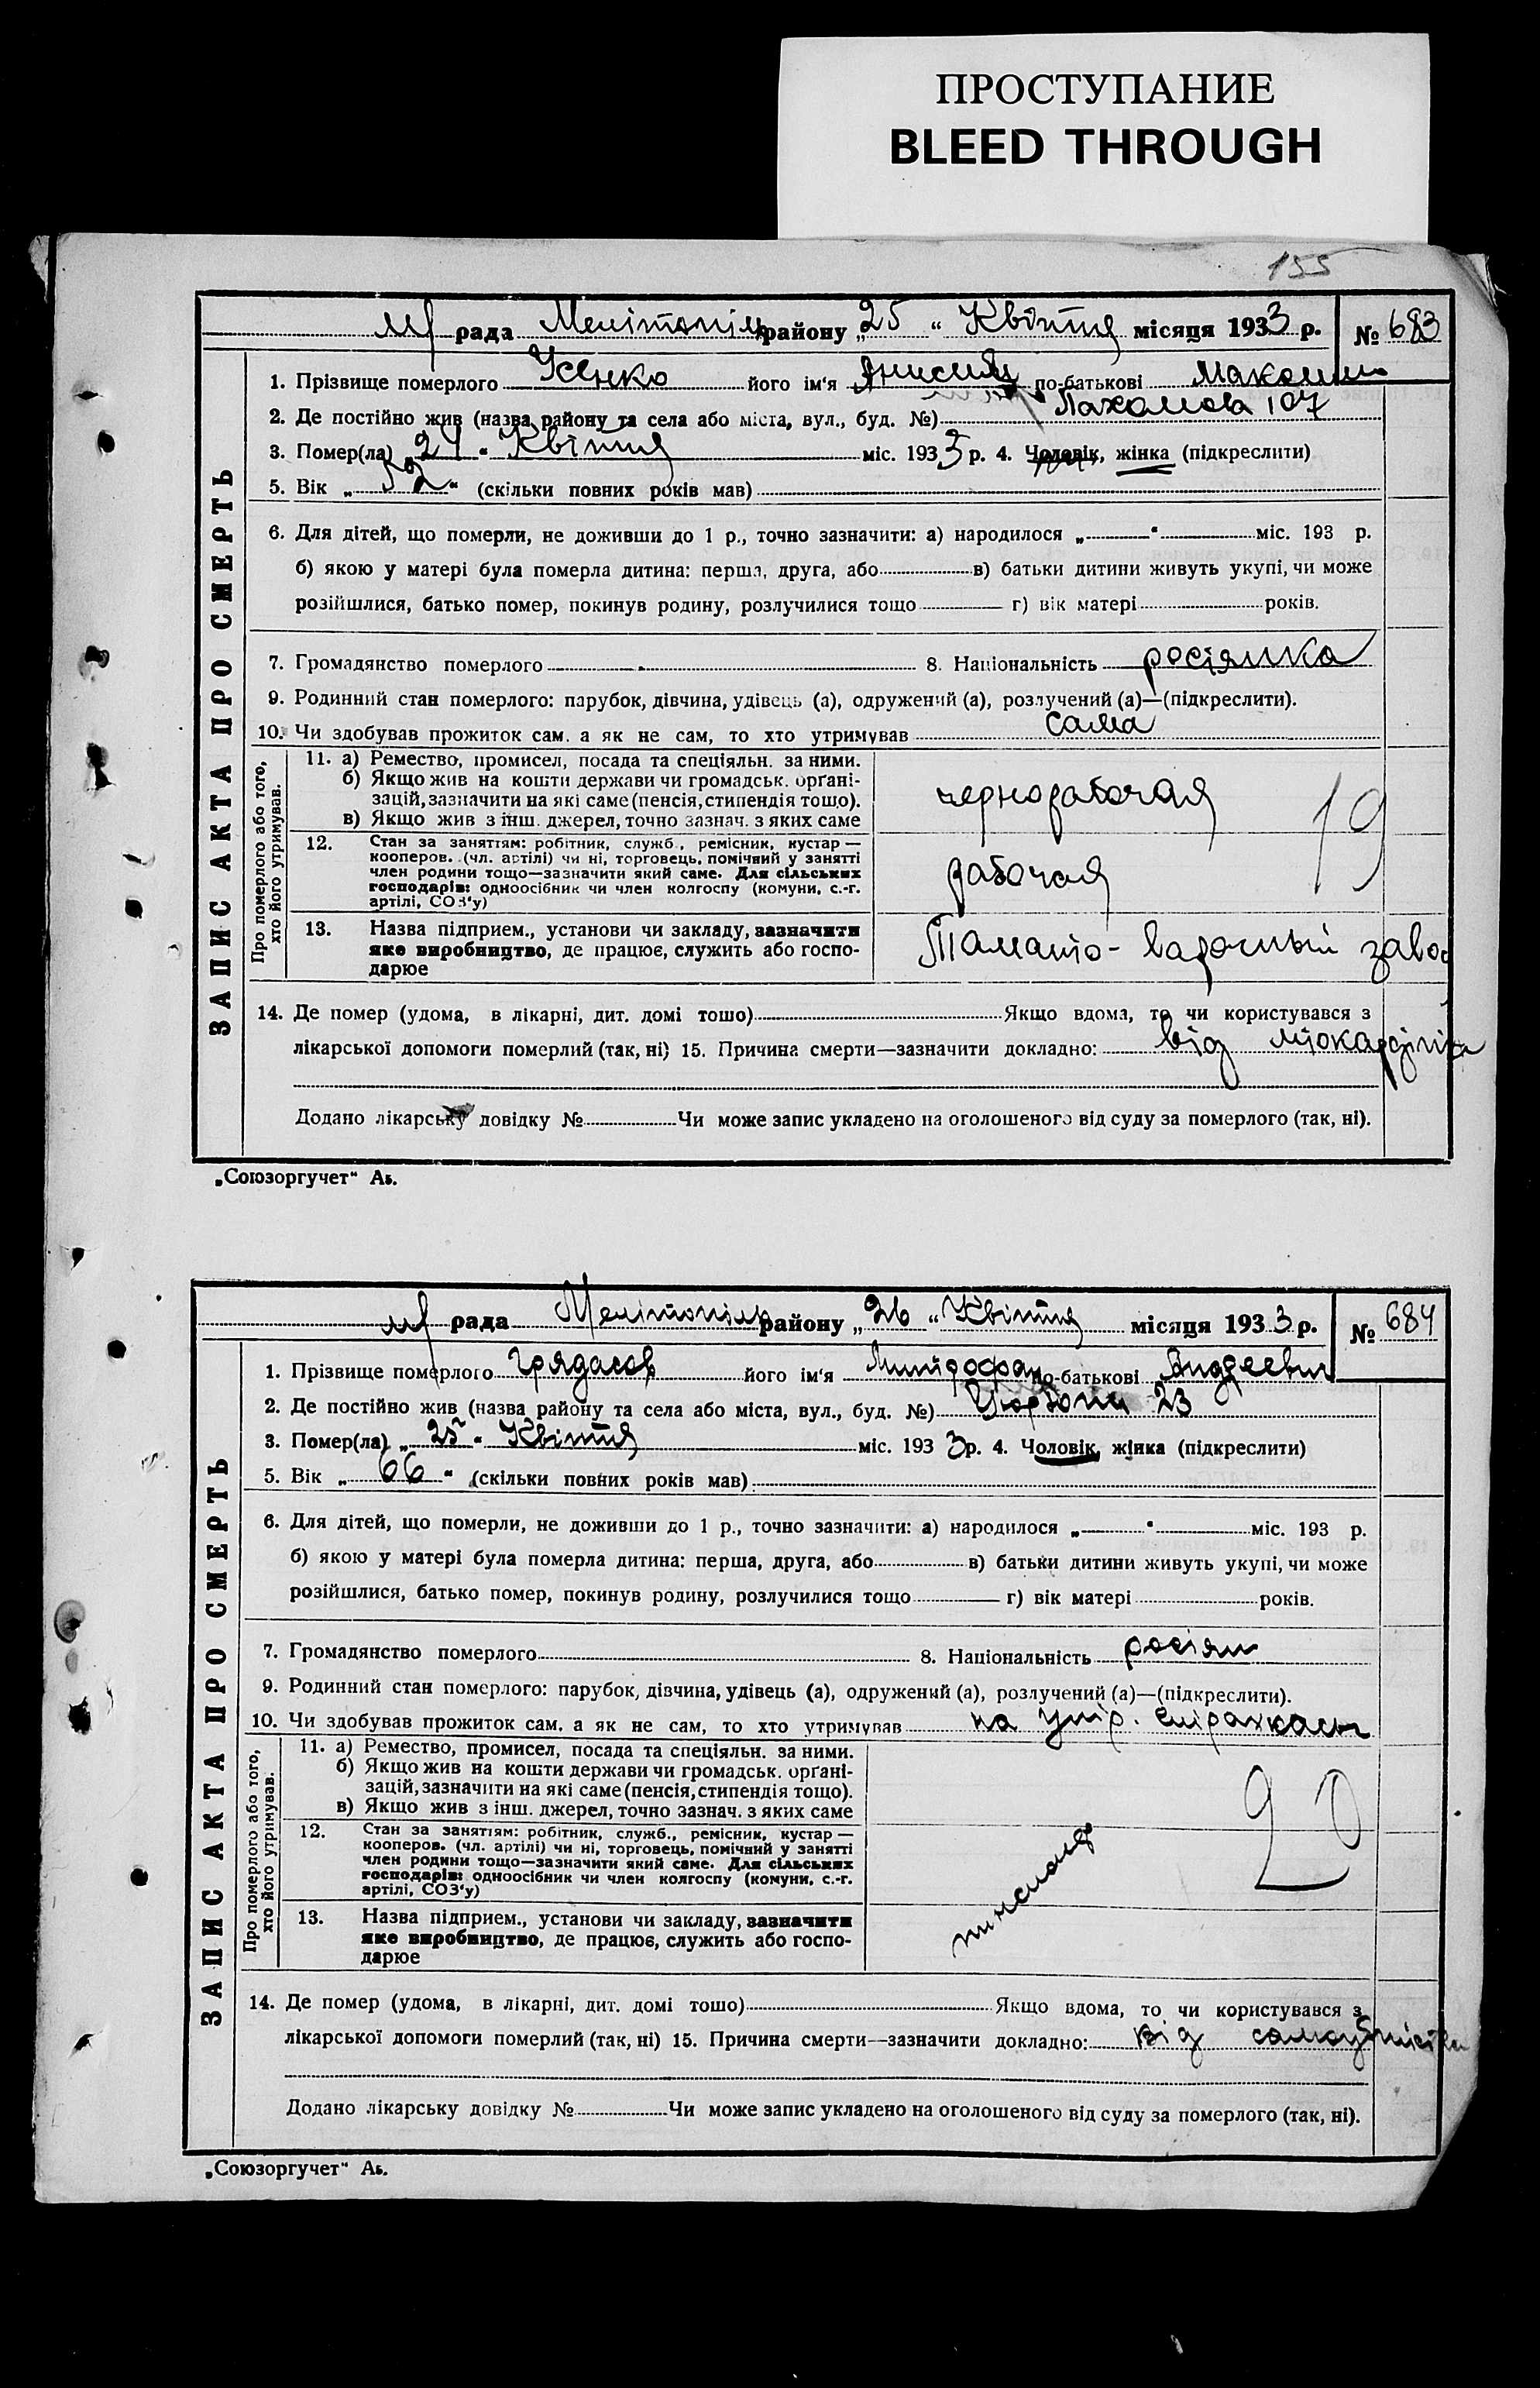 ПРОСТУПАНИЕ
BLEED THROUGH
155
ЗАПИС АКТА ПРО СМЕРТЬ
рада Мелітопіль району „25“ Квітня місяця 1933 р. № 683
1. Прізвище померлого Усенко його ім'я по-батькові
2. Де постійно жив (назва району та села або міста, вул., буд. №) Пахомова 107
3. Помер(ла) „24“ Квітня міс. 1933 р. 4. Чоловік, жінка (підкреслити)
5. Вік „52“ (скільки повних років мав)
6. Для дітей, що померли, не доживши до 1 р., точно зазначити: а) народилося „ “ міс. 193 р.
б) якою у матері була померла дитина: перша, друга, або в) батьки дитини живуть укупі, чи може
розійшлися, батько помер, покинув родину, розлучилися тощо г) вік матері років.
7. Громадянство померлого 8. Національність росіянка
9. Родинний стан померлого: парубок, дівчина, удівець (а), одружений (а), розлучений (а)—(підкреслити).
10. Чи здобував прожиток сам, а як не сам, то хто утримував сама
Про померлого або того, хто його утримував.
11. а) Ремество, промисел, посада та спеціяльн. за ними.
б) Якщо жив на кошти держави чи громадськ. орґані-
зацій, зазначити на які саме (пенсія, стипендія тощо).
в) Якщо жив з інш. джерел, точно зазнач. з яких саме
чернорабочая
19
12. Стан за заняттям: робітник, служб., ремісник, кустар —
кооперов. (чл. артілі) чи ні, торговець, помічний у занятті
член родини тощо—зазначити який саме. Для сільських
господарів: одноосібник чи член колгоспу (комуни, с.-г.
артілі, СОЗ'у)
рабочая
13. Назва підприєм., установи чи закладу, зазначити
яке виробництво, де працює, служить або госпо-
дарює
Томато-варочный завод
14. Де помер (удома, в лікарні, дит. домі тощо) Якщо вдома, то чи користувався з
лікарської допомоги померлий (так, ні) 15. Причина смерти—зазначити докладно: від міокардіта
Додано лікарську довідку № Чи може запис укладено на оголошеного від суду за померлого (так, ні).
„Союзоргучет“ Аь.
ЗАПИС АКТА ПРО СМЕРТЬ
рада Мелітопіль району „26“ Квітня місяця 1933 р. № 684
1. Прізвище померлого Грядасов його ім'я Митрофан по-батькові Андреевич
2. Де постійно жив (назва району та села або міста, вул., буд. №) 23
3. Помер(ла) „25“ Квітня міс. 1933 р. 4. Чоловік, жінка (підкреслити)
5. Вік „66“ (скільки повних років мав)
6. Для дітей, що померли, не доживши до 1 р., точно зазначити: а) народилося „ “ міс. 193 р.
б) якою у матері була померла дитина: перша, друга, або в) батьки дитини живуть укупі, чи може
розійшлися, батько помер, покинув родину, розлучилися тощо г) вік матері років.
7. Громадянство померлого 8. Національність росіян
9. Родинний стан померлого: парубок, дівчина, удівець (а), одружений (а), розлучений (а)—(підкреслити).
10. Чи здобував прожиток сам, а як не сам, то хто утримував на утр. страхкасы
Про померлого або того, хто його утримував.
11. а) Ремество, промисел, посада та спеціяльн. за ними.
б) Якщо жив на кошти держави чи громадськ. орґані-
зацій, зазначити на які саме (пенсія, стипендія тощо).
в) Якщо жив з інш. джерел, точно зазнач. з яких саме
20
12. Стан за заняттям: робітник, служб., ремісник, кустар —
кооперов. (чл. артілі) чи ні, торговець, помічний у занятті
член родини тощо—зазначити який саме. Для сільських
господарів: одноосібник чи член колгоспу (комуни, с.-г.
артілі, СОЗ'у)
13. Назва підприєм., установи чи закладу, зазначити
яке виробництво, де працює, служить або госпо-
дарює
14. Де помер (удома, в лікарні, дит. домі тощо) Якщо вдома, то чи користувався з
лікарської допомоги померлий (так, ні) 15. Причина смерти—зазначити докладно: від самоубиіства
Додано лікарську довідку № Чи може запис укладено на оголошеного від суду за померлого (так, ні).
„Союзоргучет“ Аь.